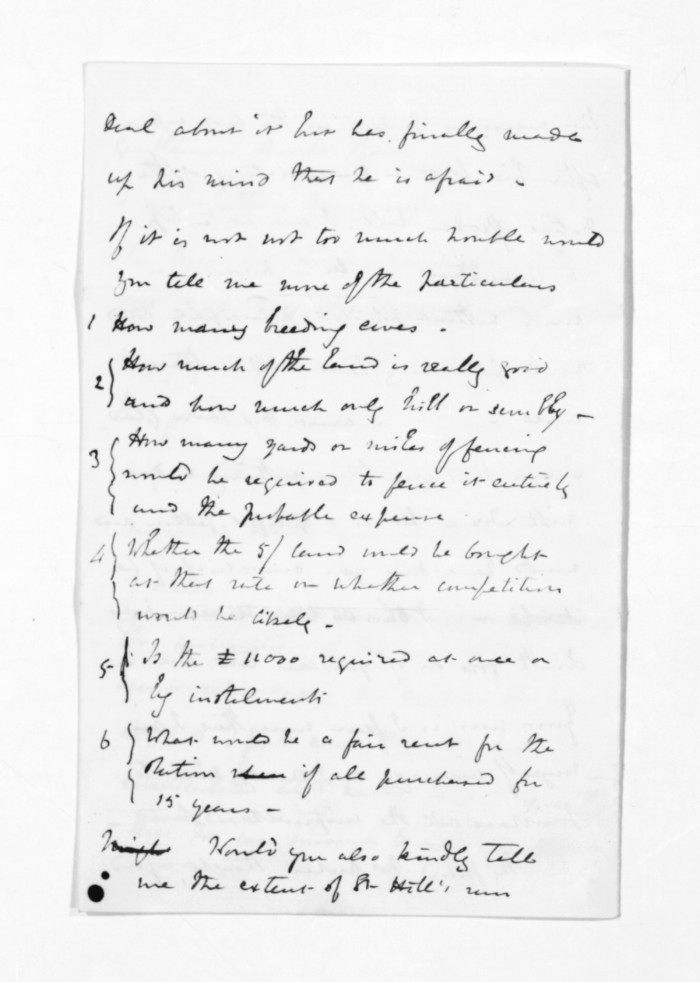 deal about it but has finally made
up his mind that he is afraid -
If it is not not too much trouble would
you tell me more of the particulars
1 How many breeding ewes -
2 How much of the land is really good
and how much only hill or scrubby -
3 How many yards or miles of fencing
would be required to fence it entirely
and the probable expense
4 Whether the 5/ land could be bought
at that rate or whether competition
would be likely -
5 Is the £11000 required at once or
by instalments
6 What would be a fair rent for the
station if all purchased for
15 years -
Would you also kindly tell
me the extent of St Hill's run